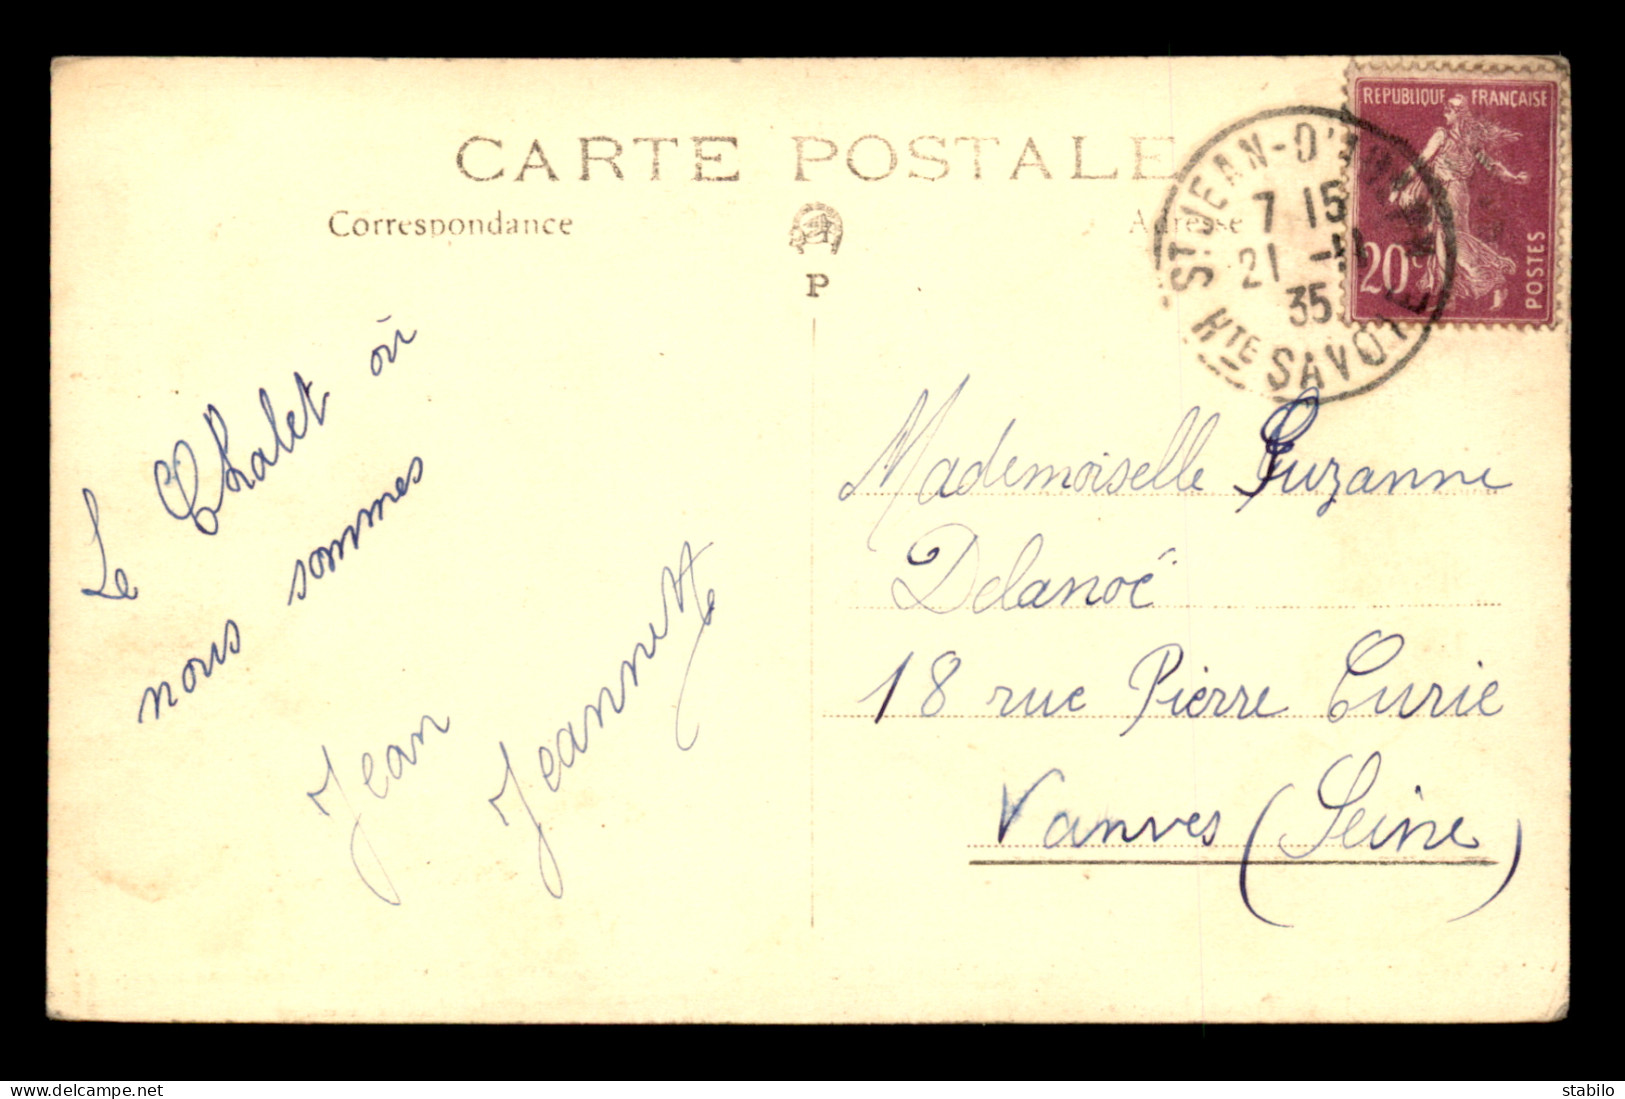 CARTE POSTALE
Correspondance
Adresse
P
REPUBLIQUE FRANÇAISE
20c
POSTES
ST JEAN-D'
7 15
21
35
HTE SAVOIE
Le Chalet où
nous sommes
Jean
Jeannette
Mademoiselle Suzanne
Delanoë
18 rue Pierre Curie
Vanves (Seine)
www.delcampe.net
stabilo